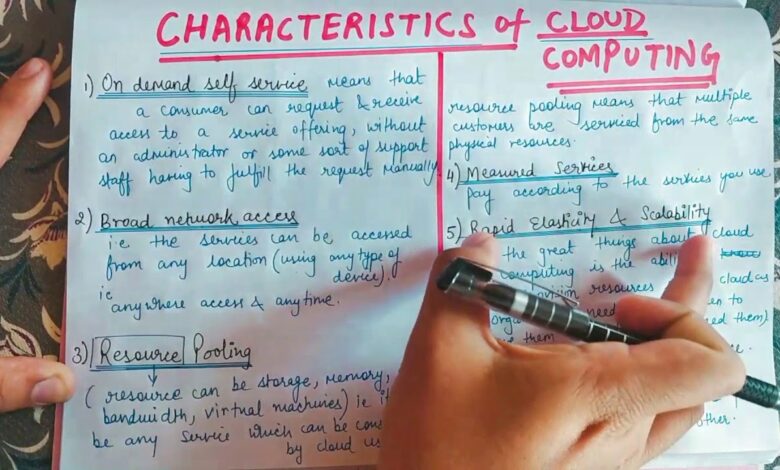 CHARACTERISTICS of CLOUD
COMPUTING
1) On demand self service means that
a consumer can request & receive
access to a service offering, without
an administrator or some sort of support
staff having to fulfill the request manually.
2) Broad network access
i.e the services can be accessed
from any location (using any type of
device).
ie
anywhere access & any time.
3) Resource Pooling
( resource can be storage, memory,
bandwidth, virtual machines) ie it
be any service which can be
by cloud
resource pooling means that multiple
customers are serviced from the same
physical resources.
4) Measured Services
pay according to the services you use
5) Rapid Elasticity & Scalability
the great things about cloud
computing is the
resources cloud as
need to
them)
them